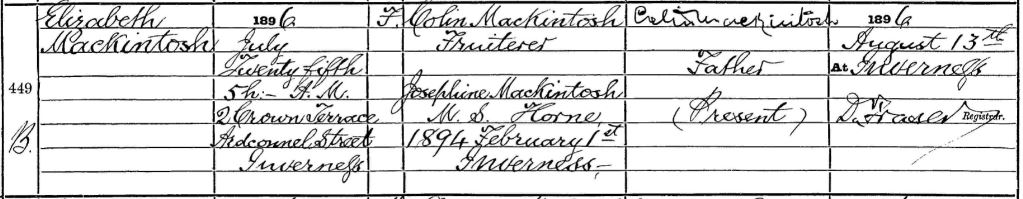 449
B.
Elizabeth
Mackintosh
1896
July
Twenty fifth
5h.- A.M.
2 Crown Terrace
Ardconnel Street
Inverness
F.
Colin Mackintosh
Fruiterer
Josephine Mackintosh
M. S. Horne
1894 February 1st
Inverness
Colin Mackintosh
Father
(Present)
1896
August 13th
At Inverness
Fraser
Registrar.